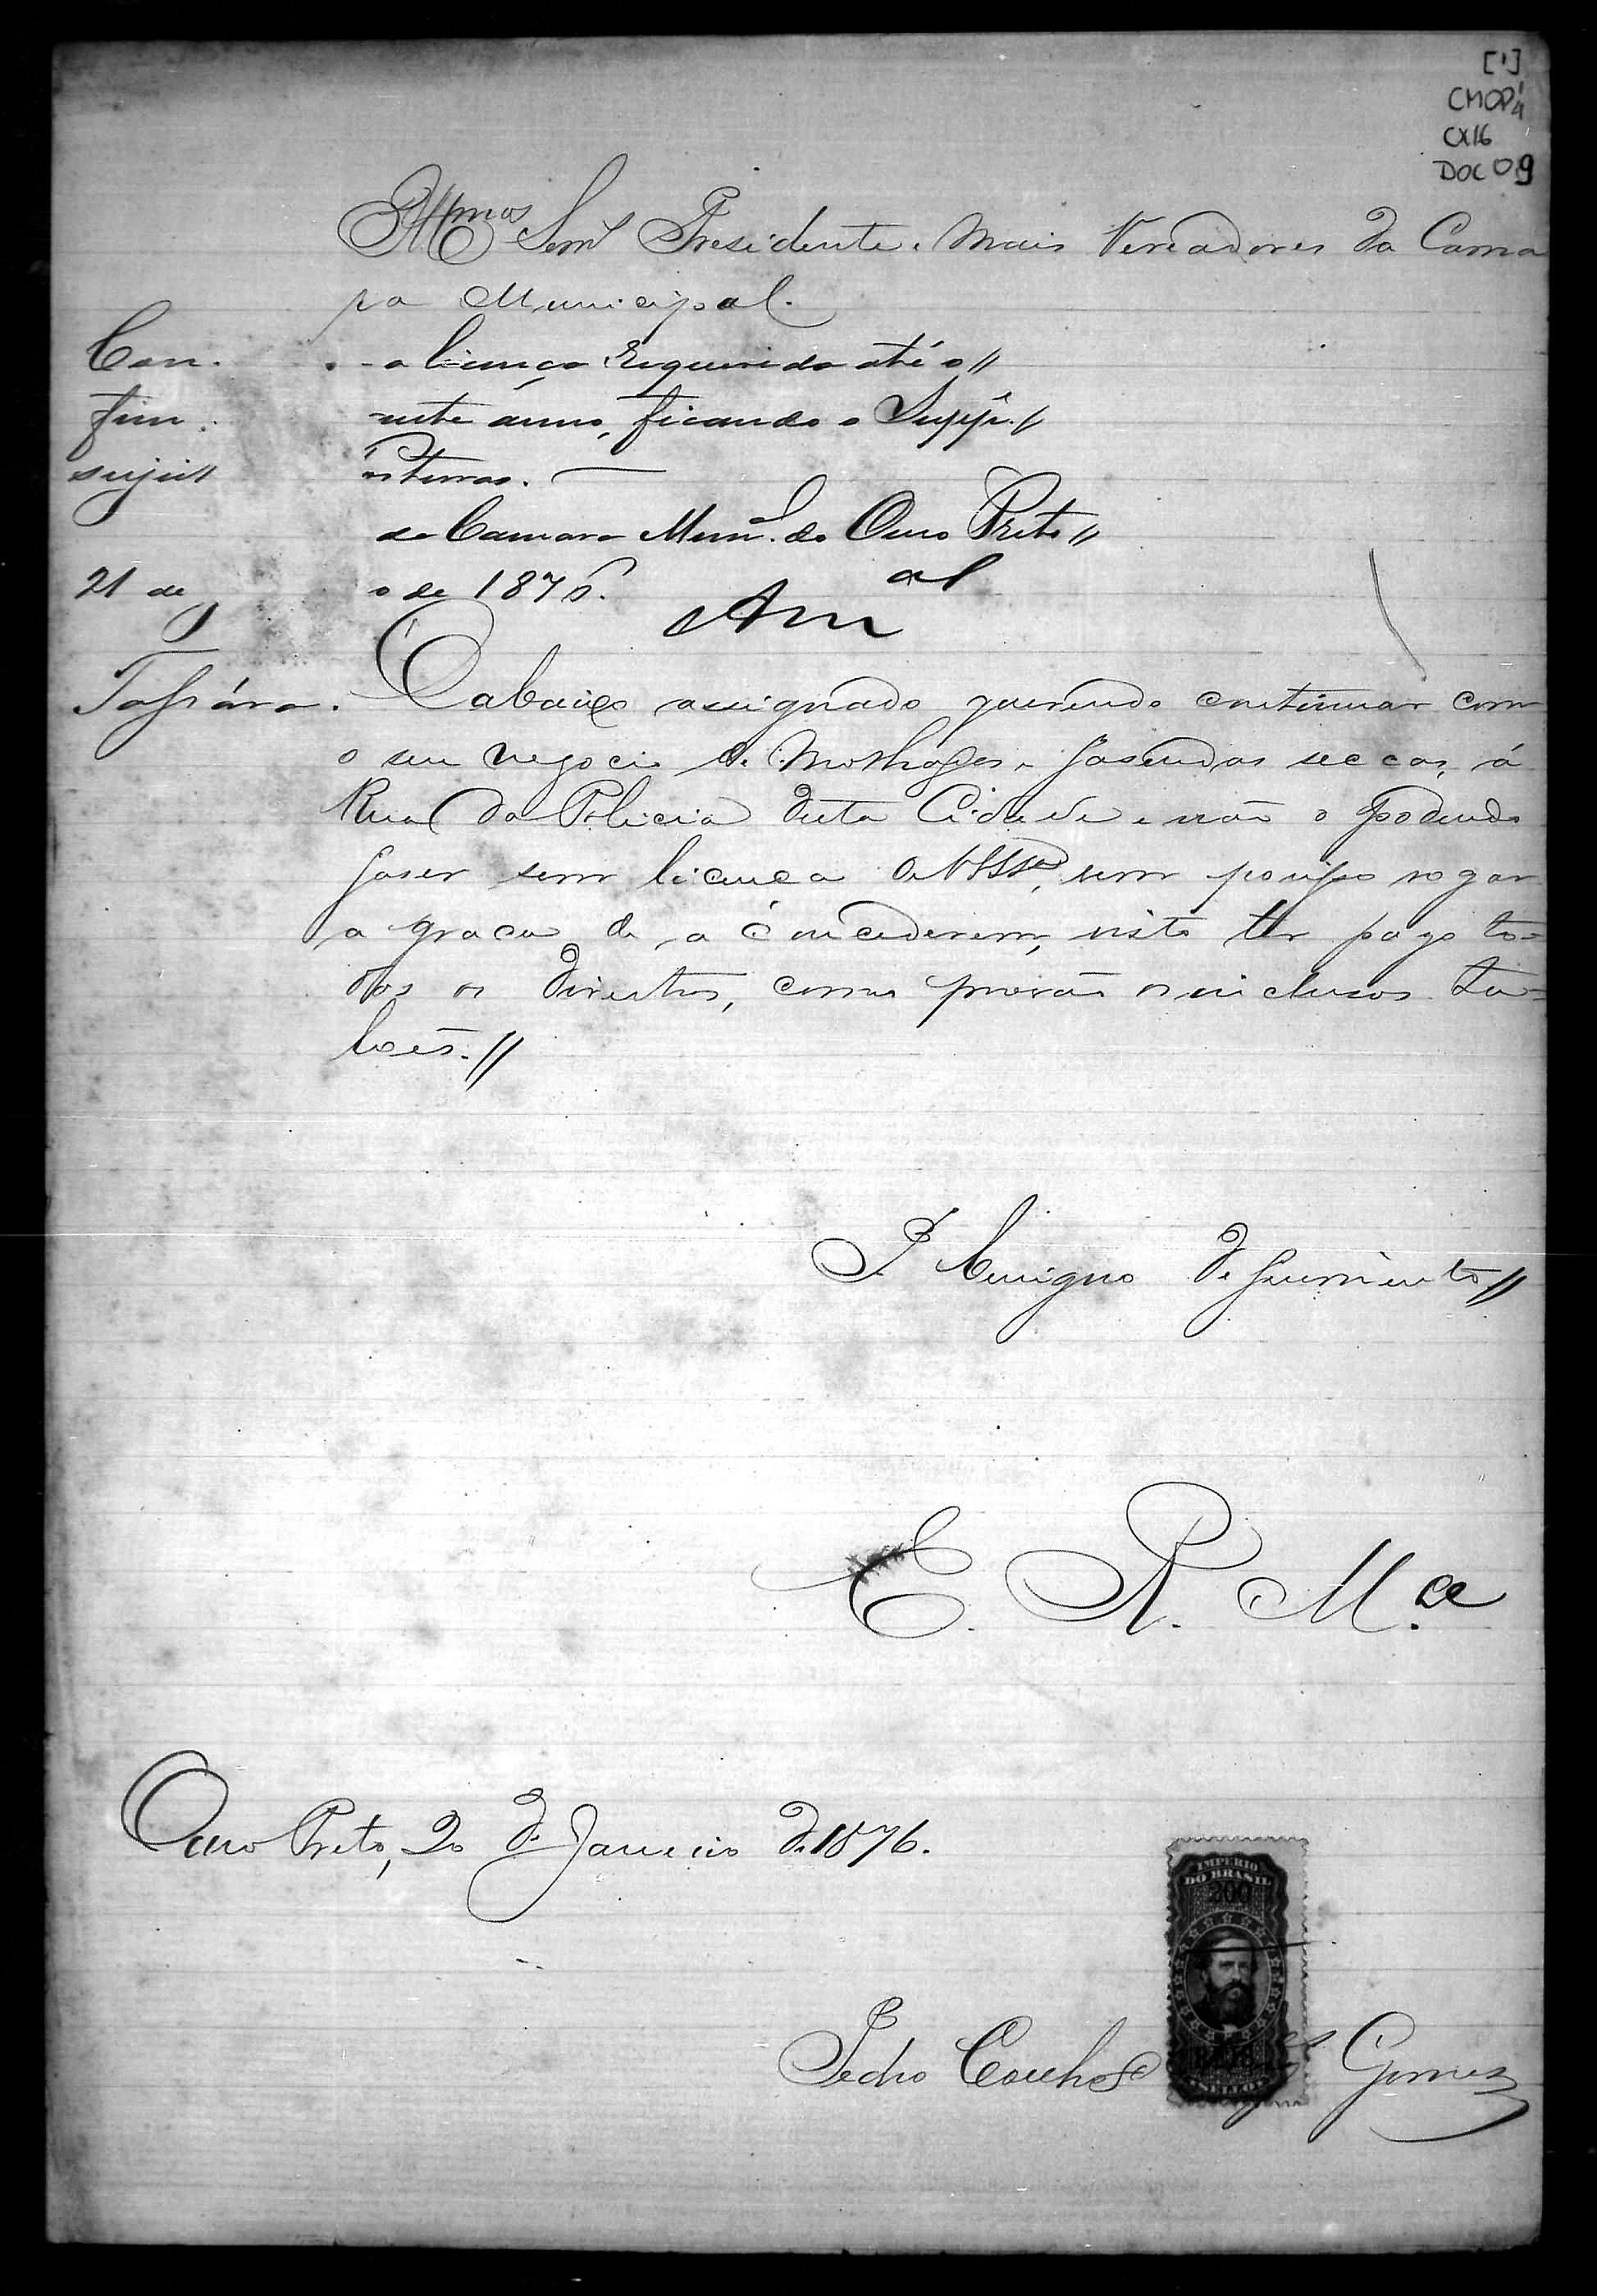 [1]
CMOP
CX16
DOC 09
Illmos Senrs Presidente e mais Vereadores da Cama
ra Municipal.
Con. a licença requerida até o //
fim. neste anno, ficando o Supp.e //
sujei //
da Camara Mun.al do Ouro Preto //
21 de o de 1876.
O abaixo assignado querendo continuar com
o seu negocio de molhados e fasendas seccas, á
Rua da Policia desta Cidade e não o podendo
faser sem licença de VSSas, vem por isso rogar
a graça de a concederem, visto ter pago to=
dos os direitos, como provão os inclusos ta=
loẽs. //
P. benigno deferimento //
E. R. M.ce
Ouro Preto, 20 de Janeiro de 1876.
IMPERIO
DO BRASIL
200
Pedro Coelho Gomes